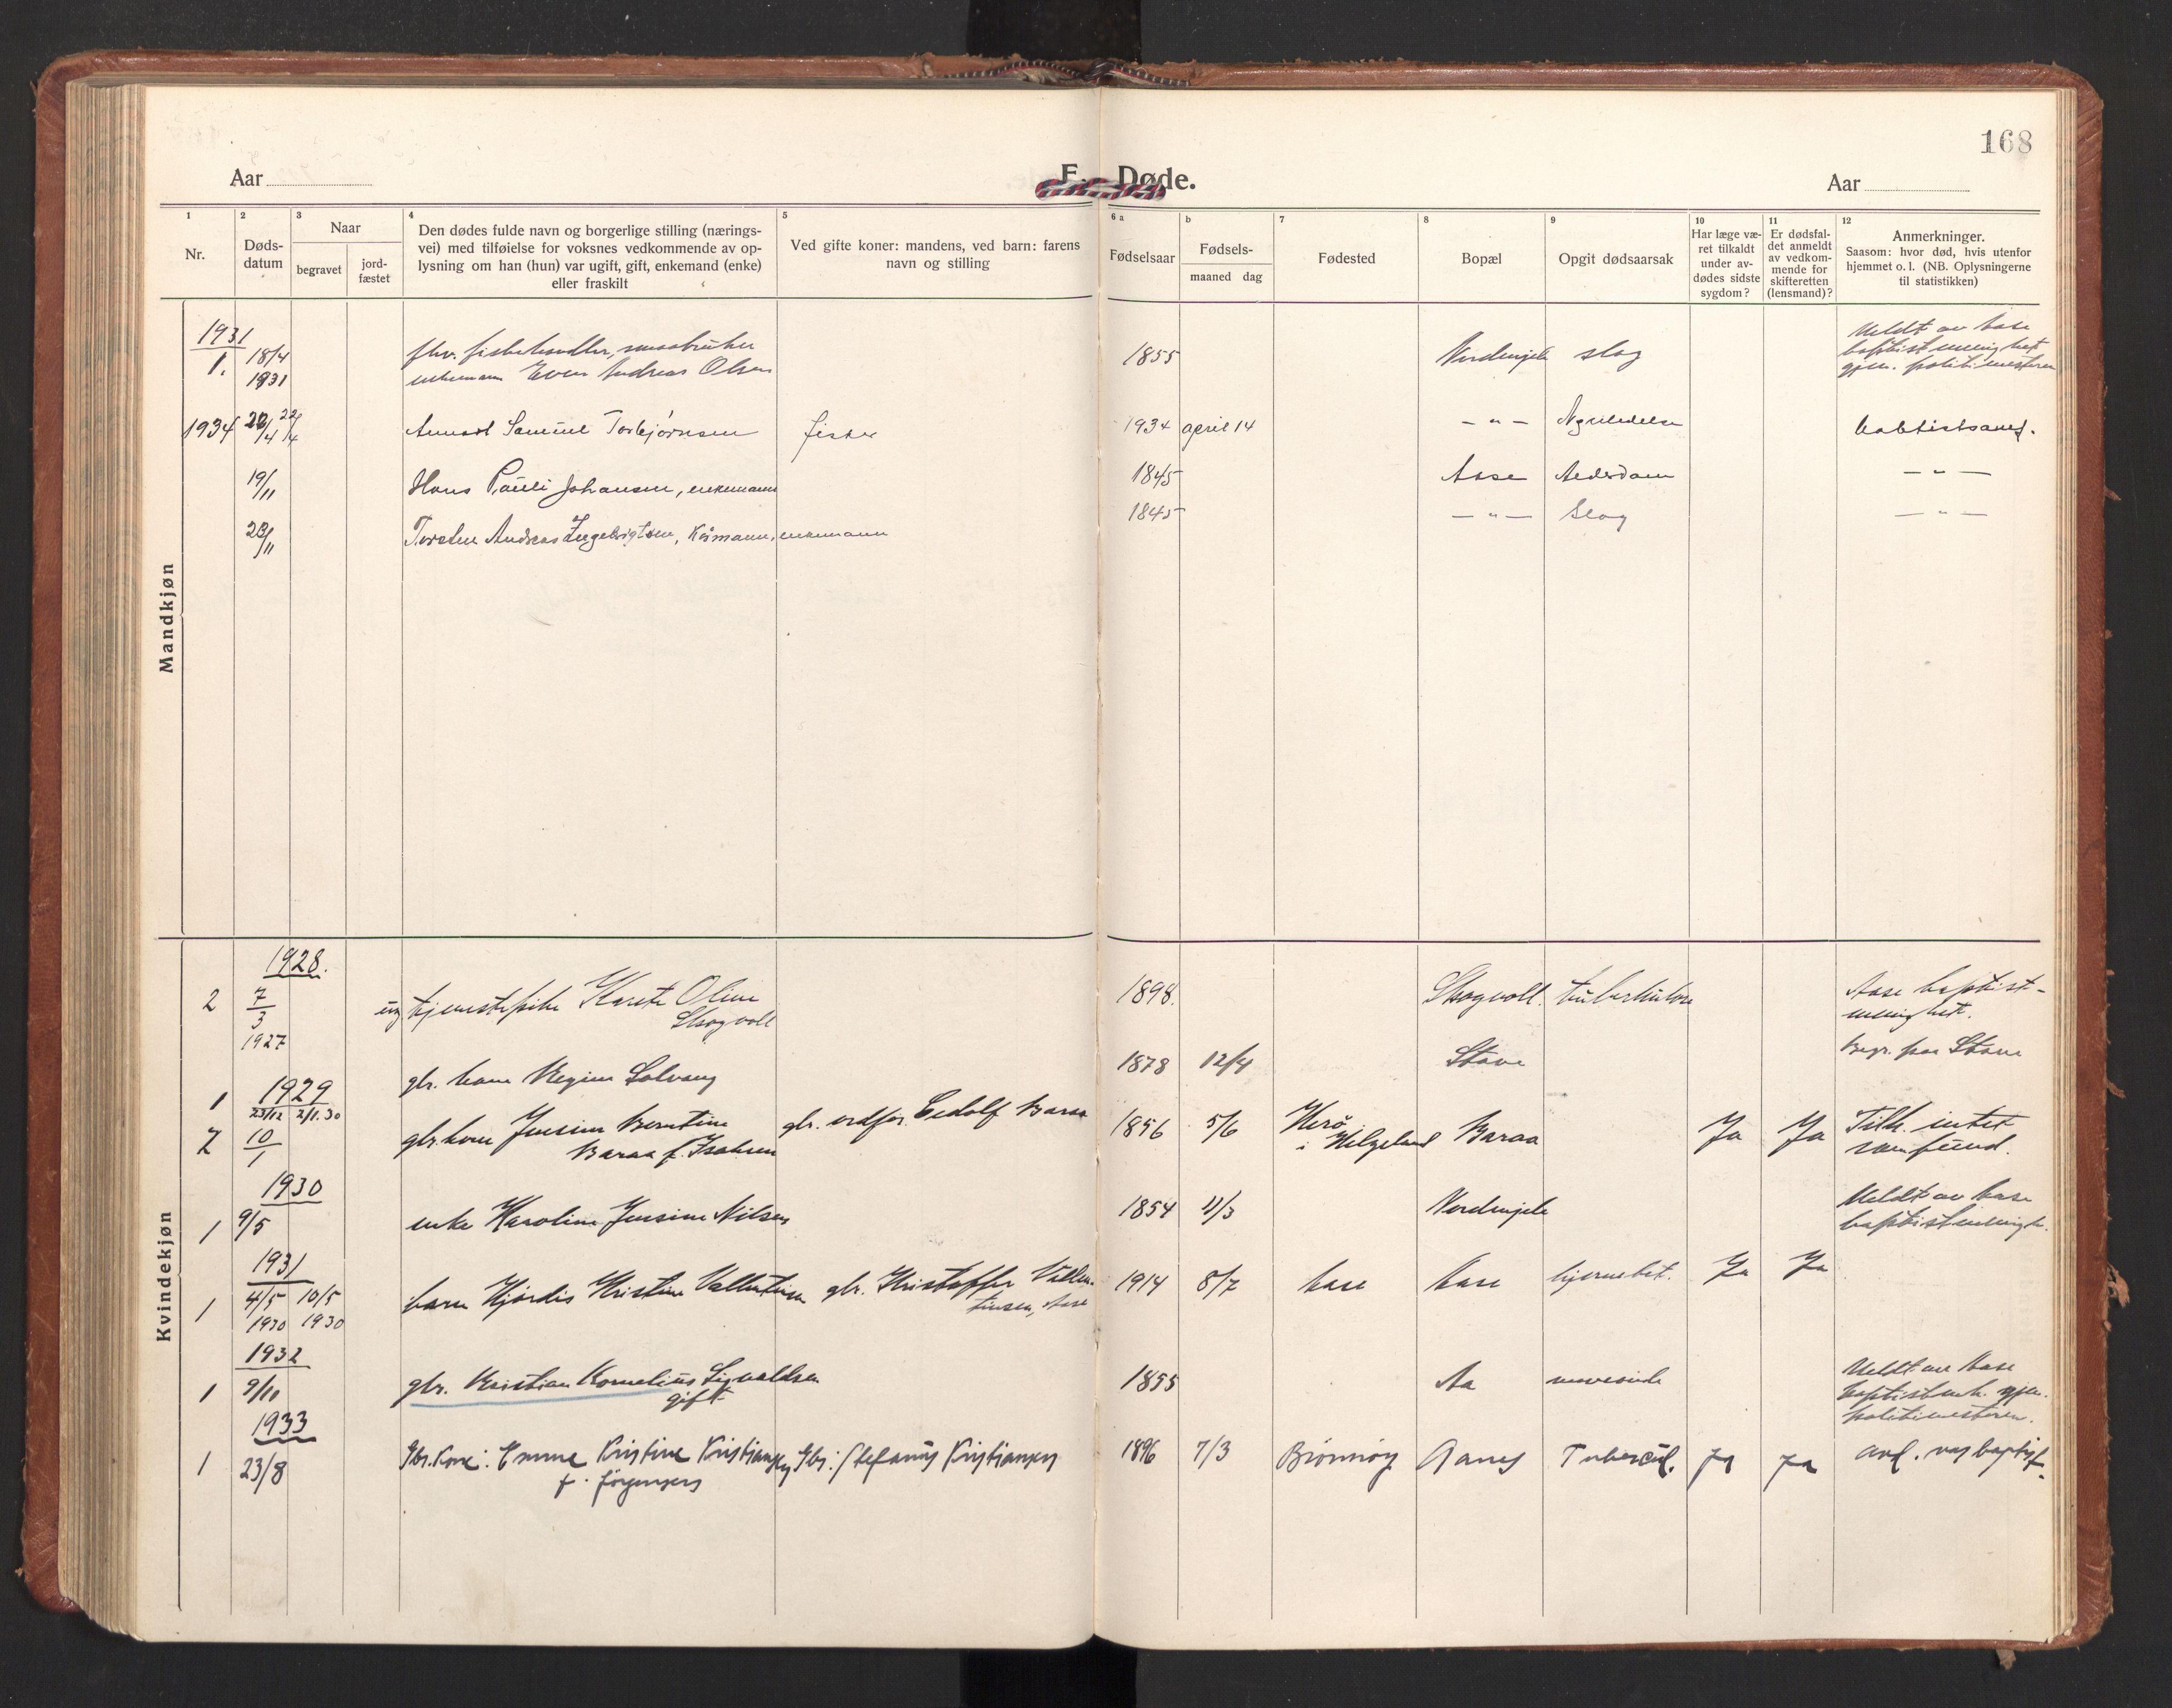 168
Aar
E. Døde.
Aar
1
Nr.
2
Døds-
datum
3
Naar
begravet
jord-
fæstet
4
Den dødes fulde navn og borgerlige stilling (nærings-
vei) med tilføielse for voksnes vedkommende av op-
lysning om han (hun) var ugift, gift, enkemand (enke)
eller fraskilt
5
Ved gifte koner: mandens, ved barn: farens
navn og stilling
6 a
Fødselsaar
b
Fødsels-
maaned dag
7
Fødested
8
Bopæl
9
Opgit dødsaarsak
10
Har læge væ-
ret tilkaldt
under av-
dødes sidste
sygdom?
11
Er dødsfal-
det anmeldt
av vedkom-
mende for
skifteretten
(lensmand)?
12
Anmerkninger.
Saasom: hvor død, hvis utenfor
hjemmet o. l. (NB. Oplysningerne
til statistikken)
Mandkjøn
1931
1. 18/4 fhv. fiskehandler, smaabruker 1855 Nordmjele slag Meldt av Aase
1931 enkemann Even Andreas Olsen baptistmenighet
gjen. politimesteren
1934 20/4 22/4 Samuel Torbjørnsen fisker 1934 april 14 - " -
19/11 Hans Pauli Johansen, enkemann 1845 Aase Alderdom - " -
23/11 Torsten Andreas Ingebrigtsen, Kårmann, enkemann 1845 - " - Slag - " -
Kvindekjøn
1928.
2 7/3 ug tjenestepike Karete Oline 1898. Skogvoll. tuberkulose Aase baptist-
Skogvoll menighet.
1927
1 gbr. kone Regine Solvang 1878 12/4 Stave Begr. paa Stave
1929
23/12 2/1.30
2 10/1 gbr. kone Jensine Berntine gbr. ordfør. Baraa 1856 5/6 Herø Baraa Ja Ja Tilh. intet
Baraa f. Isaksen i Helgeland samfund.
1930
1 9/5 enke Karoline Jensine Nilsen 1854 11/3 Nordmjele Meldt av Aase
baptistmenigh.
1931
1 4/5 10/5 barn Hjørdis Kristine Vallentinsen gbr. Kristoffer Vallen- 1914 8/7 Aase Aase hjernebet. Ja Ja
1930 1930 tinsen, Aase
1932
1 9/10 gbr. Kristian Kornelius Sigvaldsen 1855 Aa mavesaar Meldt av Aase
gift baptistmh. gjen.
politimesteren.
1933
1 23/8 Gbr. kone: Emma Kristine Kristiansen Gbr: Stefanus Kristiansen 1896 7/3 Brønnøy Aanes Tubercul. Ja Ja Avd. var baptist.
f. Jørgensen